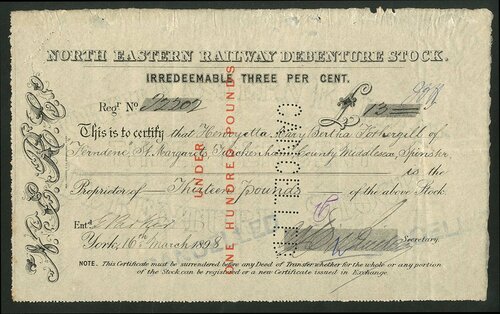 NORTH EASTERN RAILWAY DEBENTURE STOCK.
IRREDEEMABLE THREE PER CENT.
Regr. No. 22302
£ 13
This is to certify that Henryetta Mary Bertha Fothergill of
"Ferndene", St. Margarets, Twickenham, County Middlesex Spinster
is the
Proprietor of Thirteen Pounds of the above Stock.
Entd.
York, 16th March 1898
Secretary.
NOTE. This Certificate must be surrendered before any Deed of Transfer whether for the whole or any portion
of the Stock can be registered or a new Certificate issued in Exchange.
N.E.R.Co.
UNDER
ONE HUNDRED POUNDS
CANCELLED